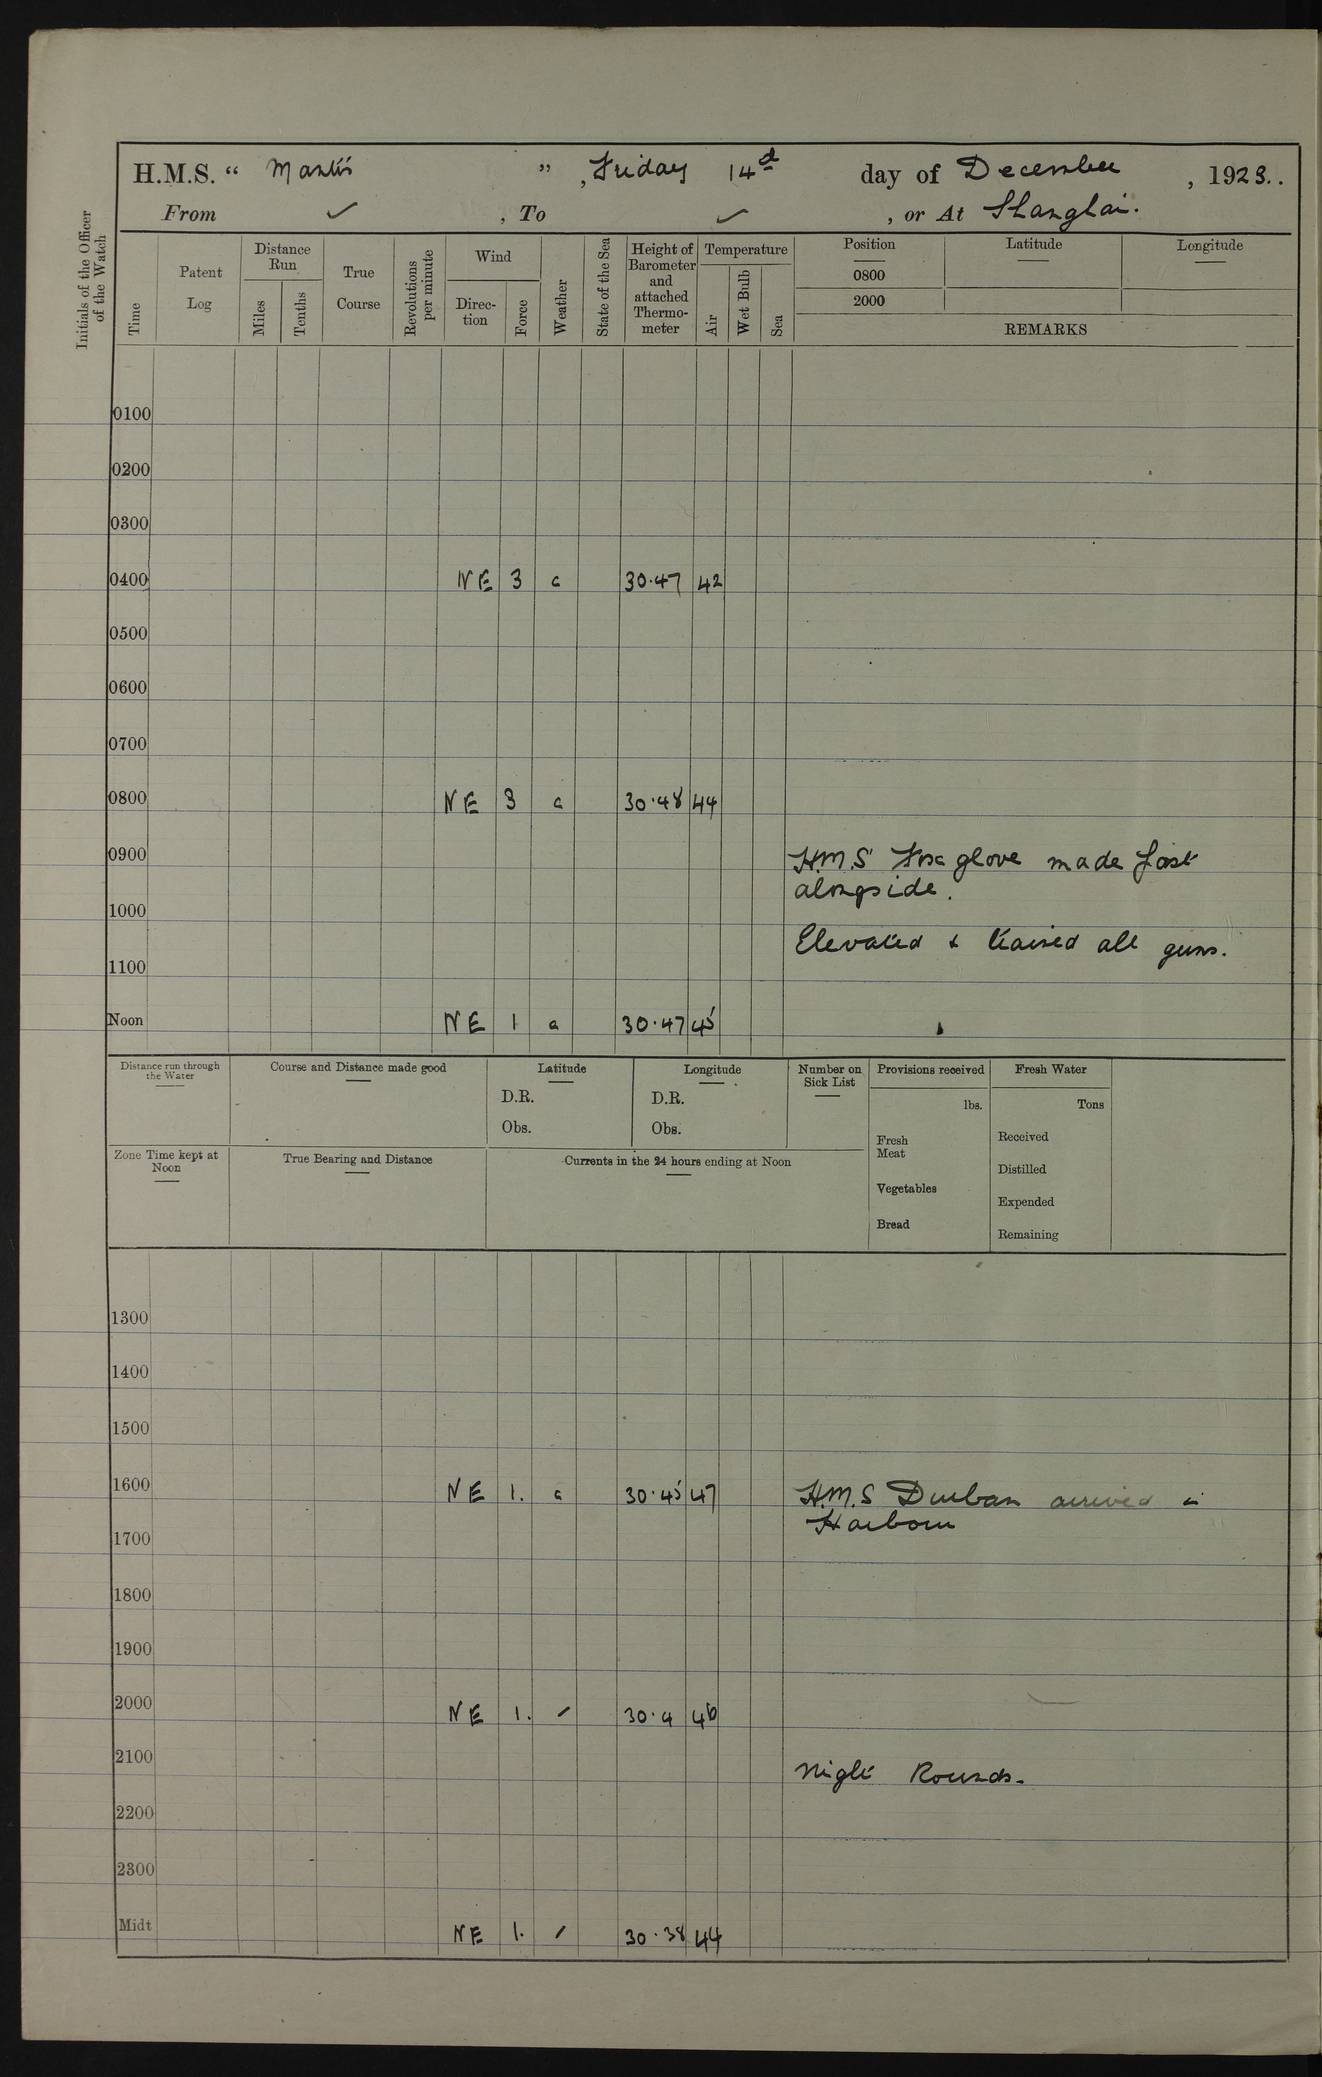 H.M.S. “ Mantis ” , Friday 14d day of December , 1923..
From ✓ , To ✓ , or At Shanghai.
Initials of the Officer of the Watch
Time
Patent Log
Distance Run
Miles
Tenths
True Course
Revolutions per minute
Wind
Direc-tion
Force
Weather
State of the Sea
Height of Barometer and attached Thermo-meter
Temperature
Air
Wet Bulb
Sea
Position Latitude Longitude
0800
2000
REMARKS
0100
0200
0300
0400 NE 3 c 30.47 42
0500
0600
0700
0800 NE 3 c 30.48 44
0900 H.M.S Foxglove made fast
alongside.
1000
Elevated & trained all guns.
1100
Noon NE 1 c 30.47 45
Distance run through the Water
Course and Distance made good
Latitude
D.R.
Obs.
Longitude
D.R.
Obs.
Number on Sick List
Provisions received
lbs.
Fresh Meat
Vegetables
Bread
Fresh Water
Tons
Received
Distilled
Expended
Remaining
Zone Time kept at Noon
True Bearing and Distance
Currents in the 24 hours ending at Noon
1300
1400
1500
1600 NE 1. c 30.45 47 H.M.S Durban arrived in
Harbour
1700
1800
1900
2000 NE 1. / 30.4 46
2100 Night Rounds.
2200
2300
Midt NE 1. / 30.38 44